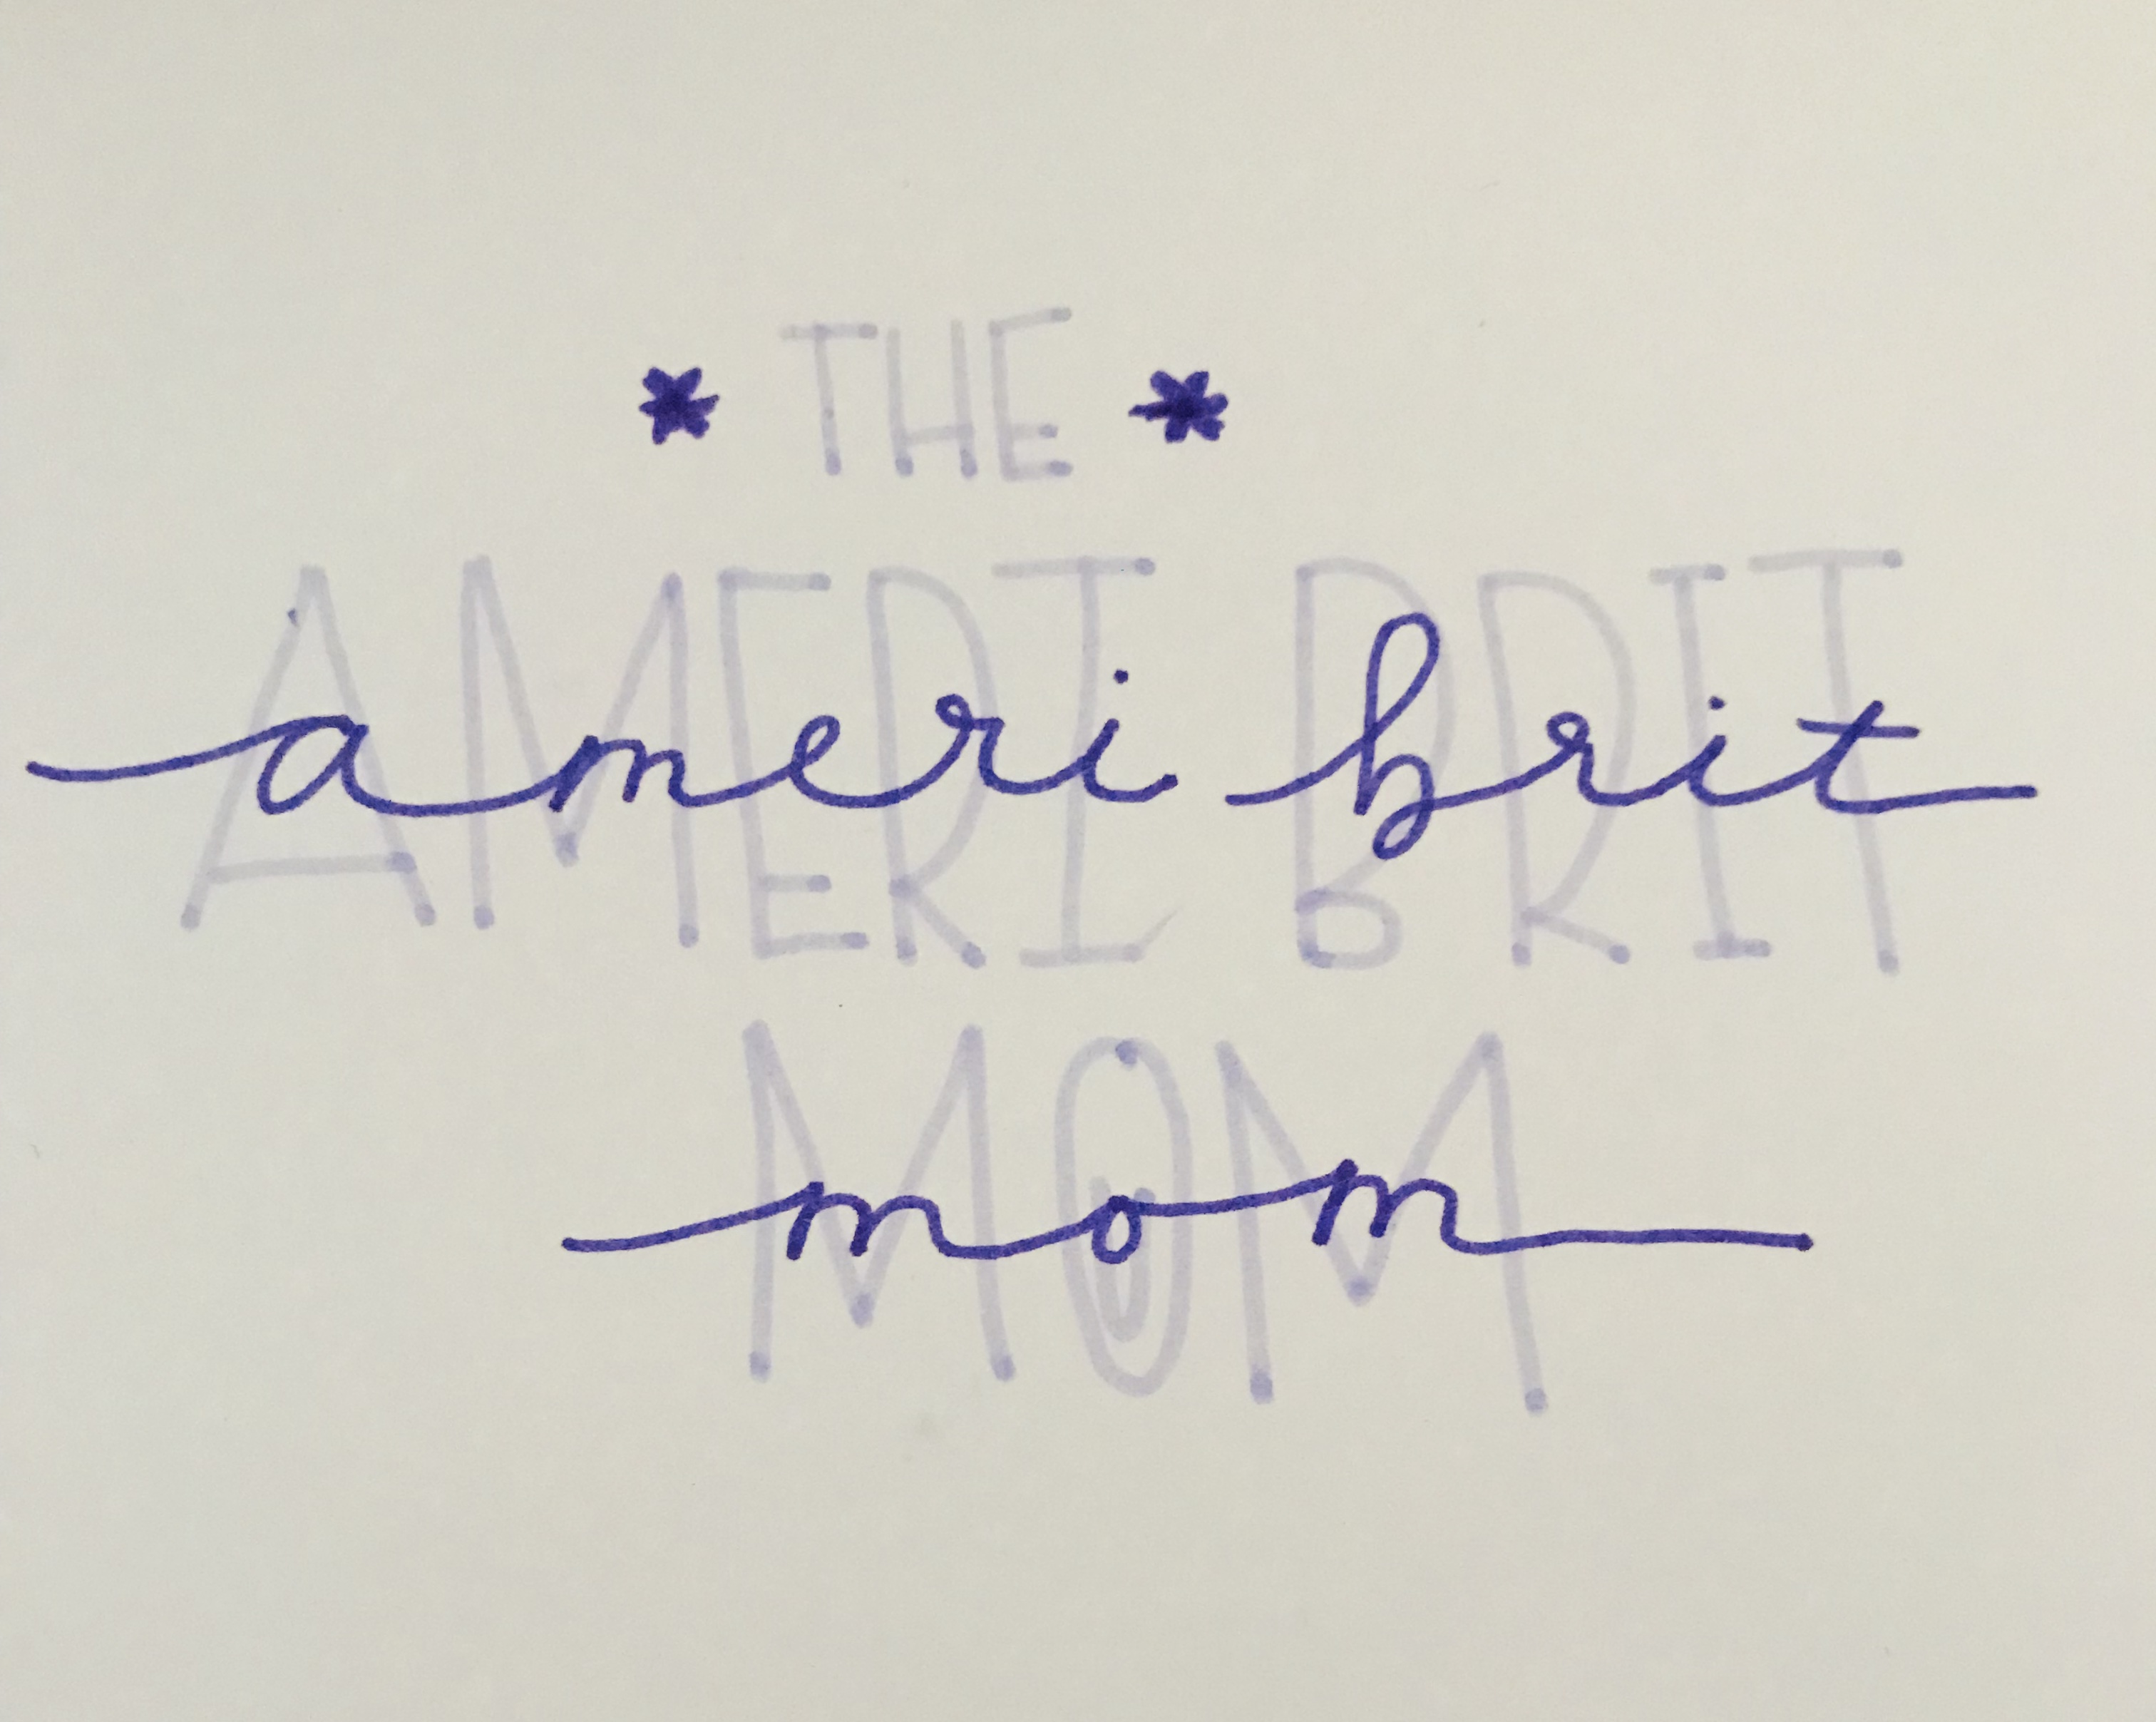 * THE *
AMERI BRIT
ameri brit
MOM
mom